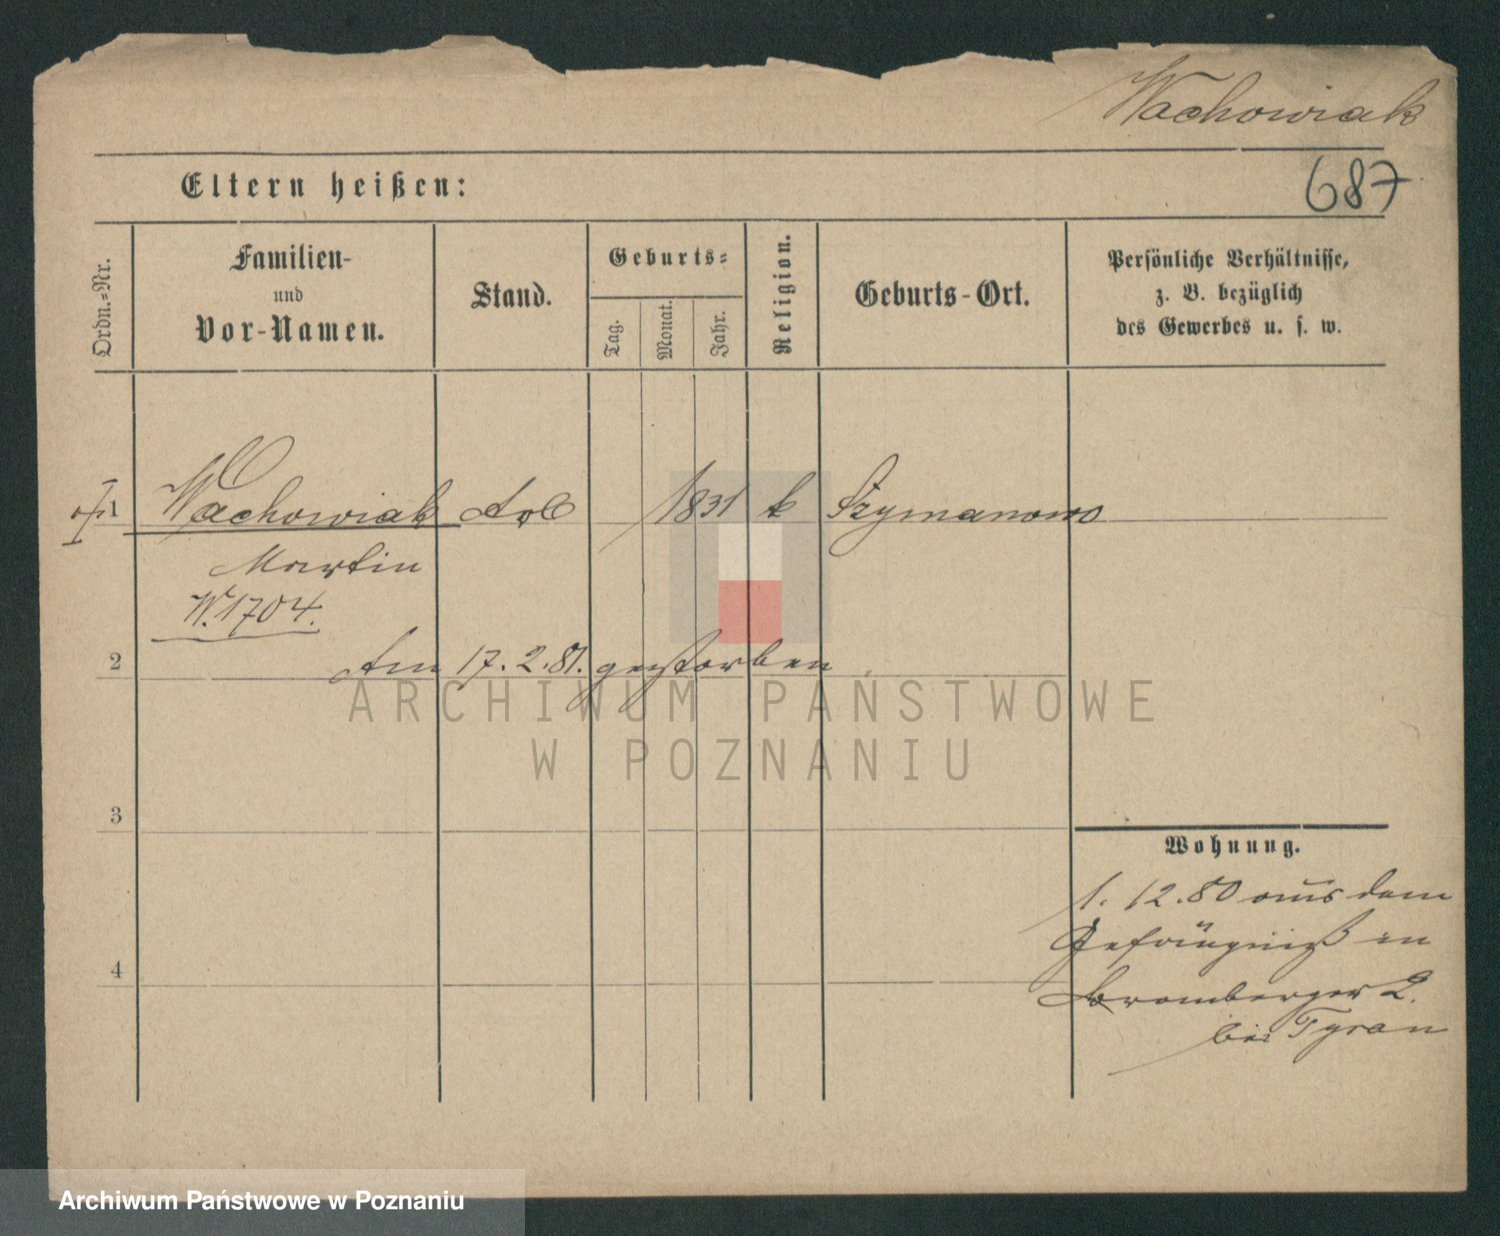 Wachowiak
687
Eltern heißen:
Ordn.-Nr.
Familien-
und
Vor-Namen.
Stand.
Geburts-
Tag.
Monat.
Jahr.
Religion.
Geburts-Ort.
Persönliche Verhältnisse,
z. B. bezüglich
des Gewerbes u. s. w.
1 Wachowiak Arb 1831 k Szymanowo
Martin
W. 1704.
2 Am 17. 2. 81. gestorben
ARCHIWUM PAŃSTWOWE
W POZNANIU
3
Wohnung.
1. 12. 80 aus dem
Gefängniß in
4 Bromberger 2.
bei Tyran
Archiwum Państwowe w Poznaniu